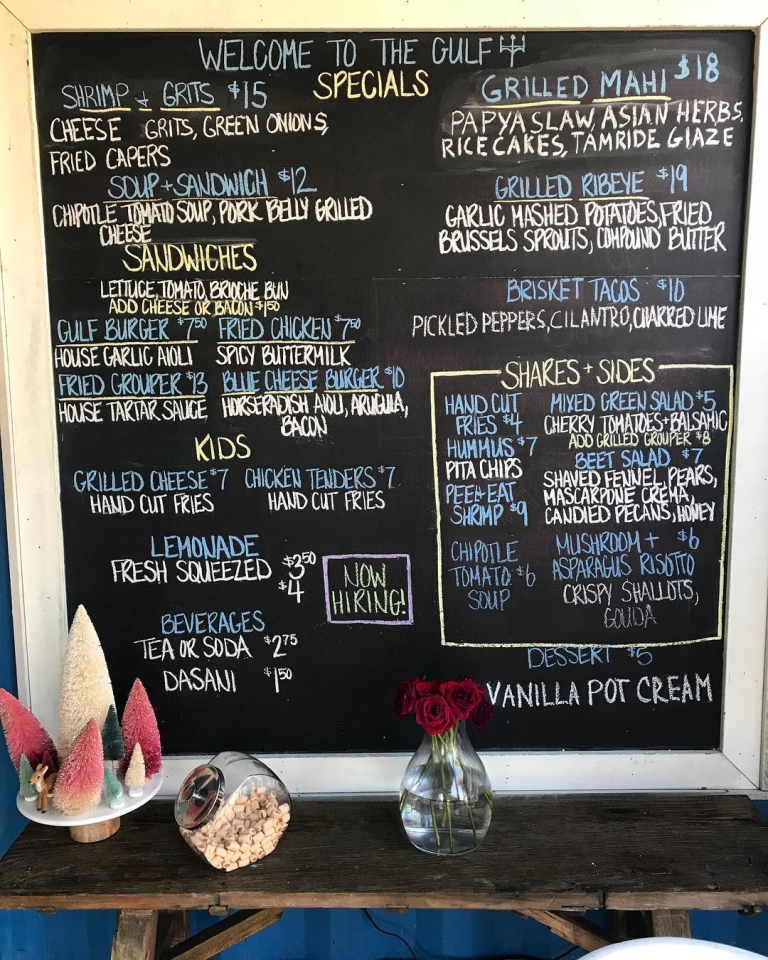 WELCOME TO THE GULF
SPECIALS
SHRIMP + GRITS $15
CHEESE GRITS, GREEN ONIONS,
FRIED CAPERS
SOUP + SANDWICH $12
CHIPOTLE TOMATO SOUP, PORK BELLY GRILLED
CHEESE
GRILLED MAHI $18
PAPYA SLAW, ASIAN HERBS,
RICE CAKES, TAMRIDE GLAZE
GRILLED RIBEYE $19
GARLIC MASHED POTATOES, FRIED
BRUSSELS SPROUTS, COMPOUND BUTTER
BRISKET TACOS $10
PICKLED PEPPERS, CILANTRO, CHARRED LIME
SANDWICHES
LETTUCE, TOMATO, BRIOCHE BUN
ADD CHEESE OR BACON $1.50
GULF BURGER $7.50
HOUSE GARLIC AIOLI
FRIED CHICKEN $7.50
SPICY BUTTERMILK
FRIED GROUPER $13
HOUSE TARTAR SAUCE
BLUE CHEESE BURGER $10
HORSERADISH AIOLI, ARUGULA,
BACON
KIDS
GRILLED CHEESE $7
HAND CUT FRIES
CHICKEN TENDERS $7
HAND CUT FRIES
LEMONADE
FRESH SQUEEZED $3.50
$4
NOW
HIRING!
BEVERAGES
TEA OR SODA $2.75
DASANI $1.50
SHARES + SIDES
HAND CUT
FRIES $4
HUMMUS $7
PITA CHIPS
PEEL + EAT
SHRIMP $9
CHIPOTLE
TOMATO $6
SOUP
MIXED GREEN SALAD $5
CHERRY TOMATOES + BALSAMIC
ADD GRILLED GROUPER $8
BEET SALAD $7
SHAVED FENNEL, PEARS,
MASCARPONE CREMA,
CANDIED PECANS, HONEY
MUSHROOM + $6
ASPARAGUS RISOTTO
CRISPY SHALLOTS,
GOUDA
DESSERT $5
VANILLA POT CREAM